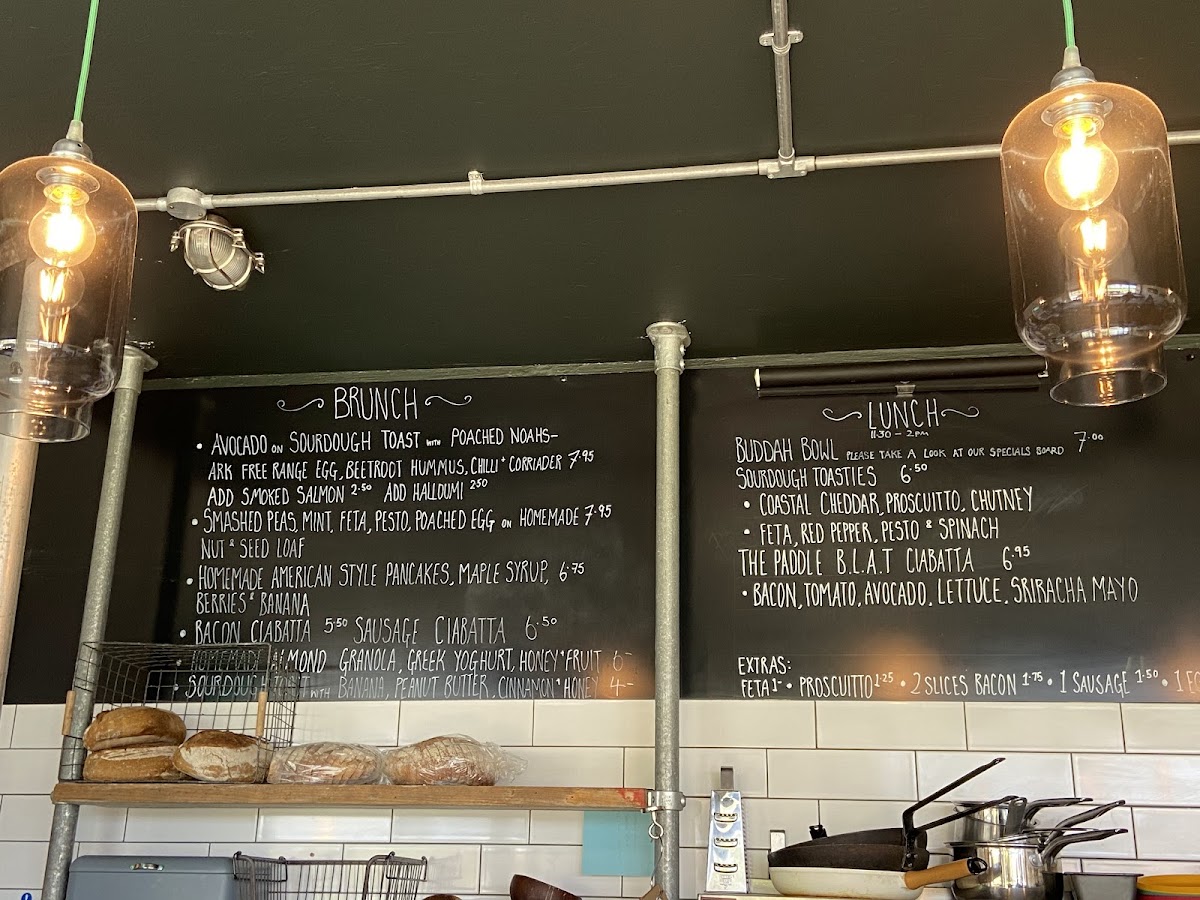 BRUNCH
• AVOCADO ON SOURDOUGH TOAST WITH POACHED NOAHS-
ARK FREE RANGE EGG, BEETROOT HUMMUS, CHILLI + CORRIADER 7.95
ADD SMOKED SALMON 2.50 ADD HALLOUMI 2.50
• SMASHED PEAS, MINT, FETA, PESTO, POACHED EGG ON HOMEMADE 7.95
NUT & SEED LOAF
• HOMEMADE AMERICAN STYLE PANCAKES, MAPLE SYRUP, 6.75
BERRIES & BANANA
• BACON CIABATTA 5.50 SAUSAGE CIABATTA 6.50
HOMEMADE ALMOND GRANOLA, GREEK YOGHURT, HONEY + FRUIT 6-
• SOURDOUGH TOAST WITH BANANA, PEANUT BUTTER, CINNAMON + HONEY 4-
LUNCH
11:30 - 2PM
BUDDAH BOWL PLEASE TAKE A LOOK AT OUR SPECIALS BOARD 7.00
SOURDOUGH TOASTIES 6.50
• COASTAL CHEDDAR, PROSCUITTO, CHUTNEY
• FETA, RED PEPPER, PESTO & SPINACH
THE PADDLE B.L.A.T CIABATTA 6.95
• BACON, TOMATO, AVOCADO, LETTUCE, SRIRACHA MAYO
EXTRAS:
FETA 1- • PROSCUITTO 1.25 • 2 SLICES BACON 1.75 • 1 SAUSAGE 1.50 • 1